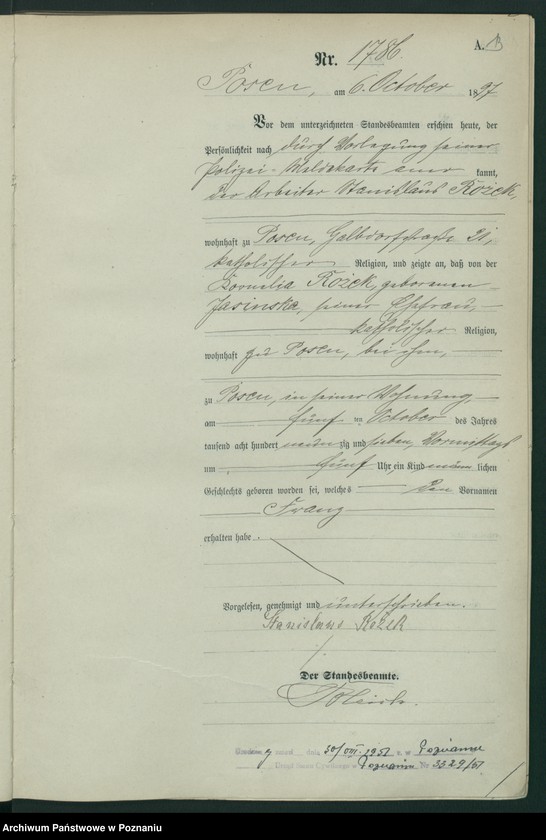 A. B
Nr. 1786.
Posen, am 6. October 1897
Vor dem unterzeichneten Standesbeamten erschien heute, der
Persönlichkeit nach durch Vorlegung seiner
Polizei-Meldekarte aner kannt,
der Arbeiter Stanislaus Rożek,
wohnhaft zu Posen, Halbdorfstraße 21,
katholischer Religion, und zeigte an, daß von der
Kornelia Rożek, geborenen
Jasinska, seiner Ehefrau,
katholischer Religion,
wohnhaft zu Posen, bei ihm,
zu Posen, in seiner Wohnung
am fünf ten October des Jahres
tausend acht hundert neun zig und sieben, Vormittags
um fünf Uhr ein Kind männ lichen
Geschlechts geboren worden sei, welches den Vornamen
Franz
erhalten habe.
Vorgelesen, genehmigt und unterschrieben.
Stanislaus Rożek
Der Standesbeamte.
dnia 30/VIII. 1951 r. w Poznaniu
Urząd Stanu Cywilnego w Poznaniu Nr 3329/51
Archiwum Państwowe w Poznaniu